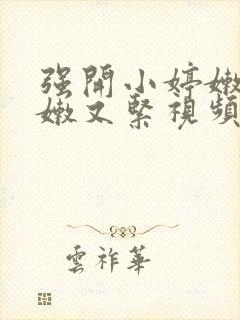 强開小婷嫩
嫩又緊視頻
雲祚華